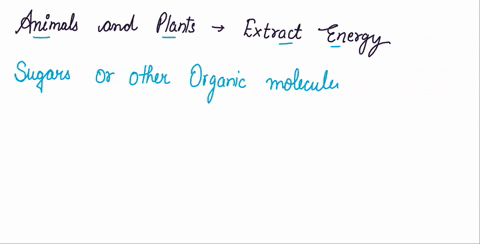 Animals and Plants → Extract Energy
Sugars or other Organic molecule